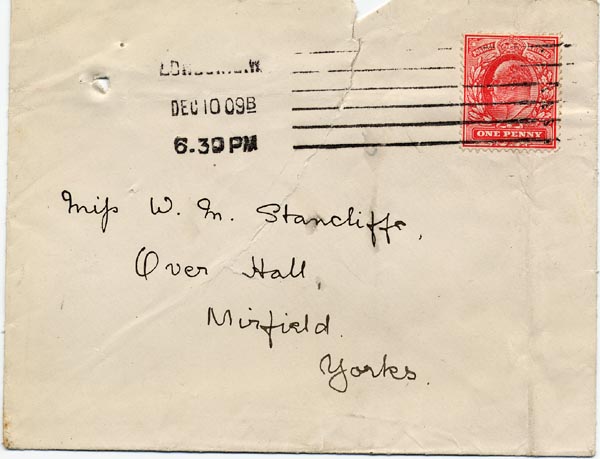 LONDON.S.W
DEC 10 09B
6.30 PM
ONE PENNY
Miss W. M. Stancliffe,
Over Hall,
Mirfield.
Yorks.